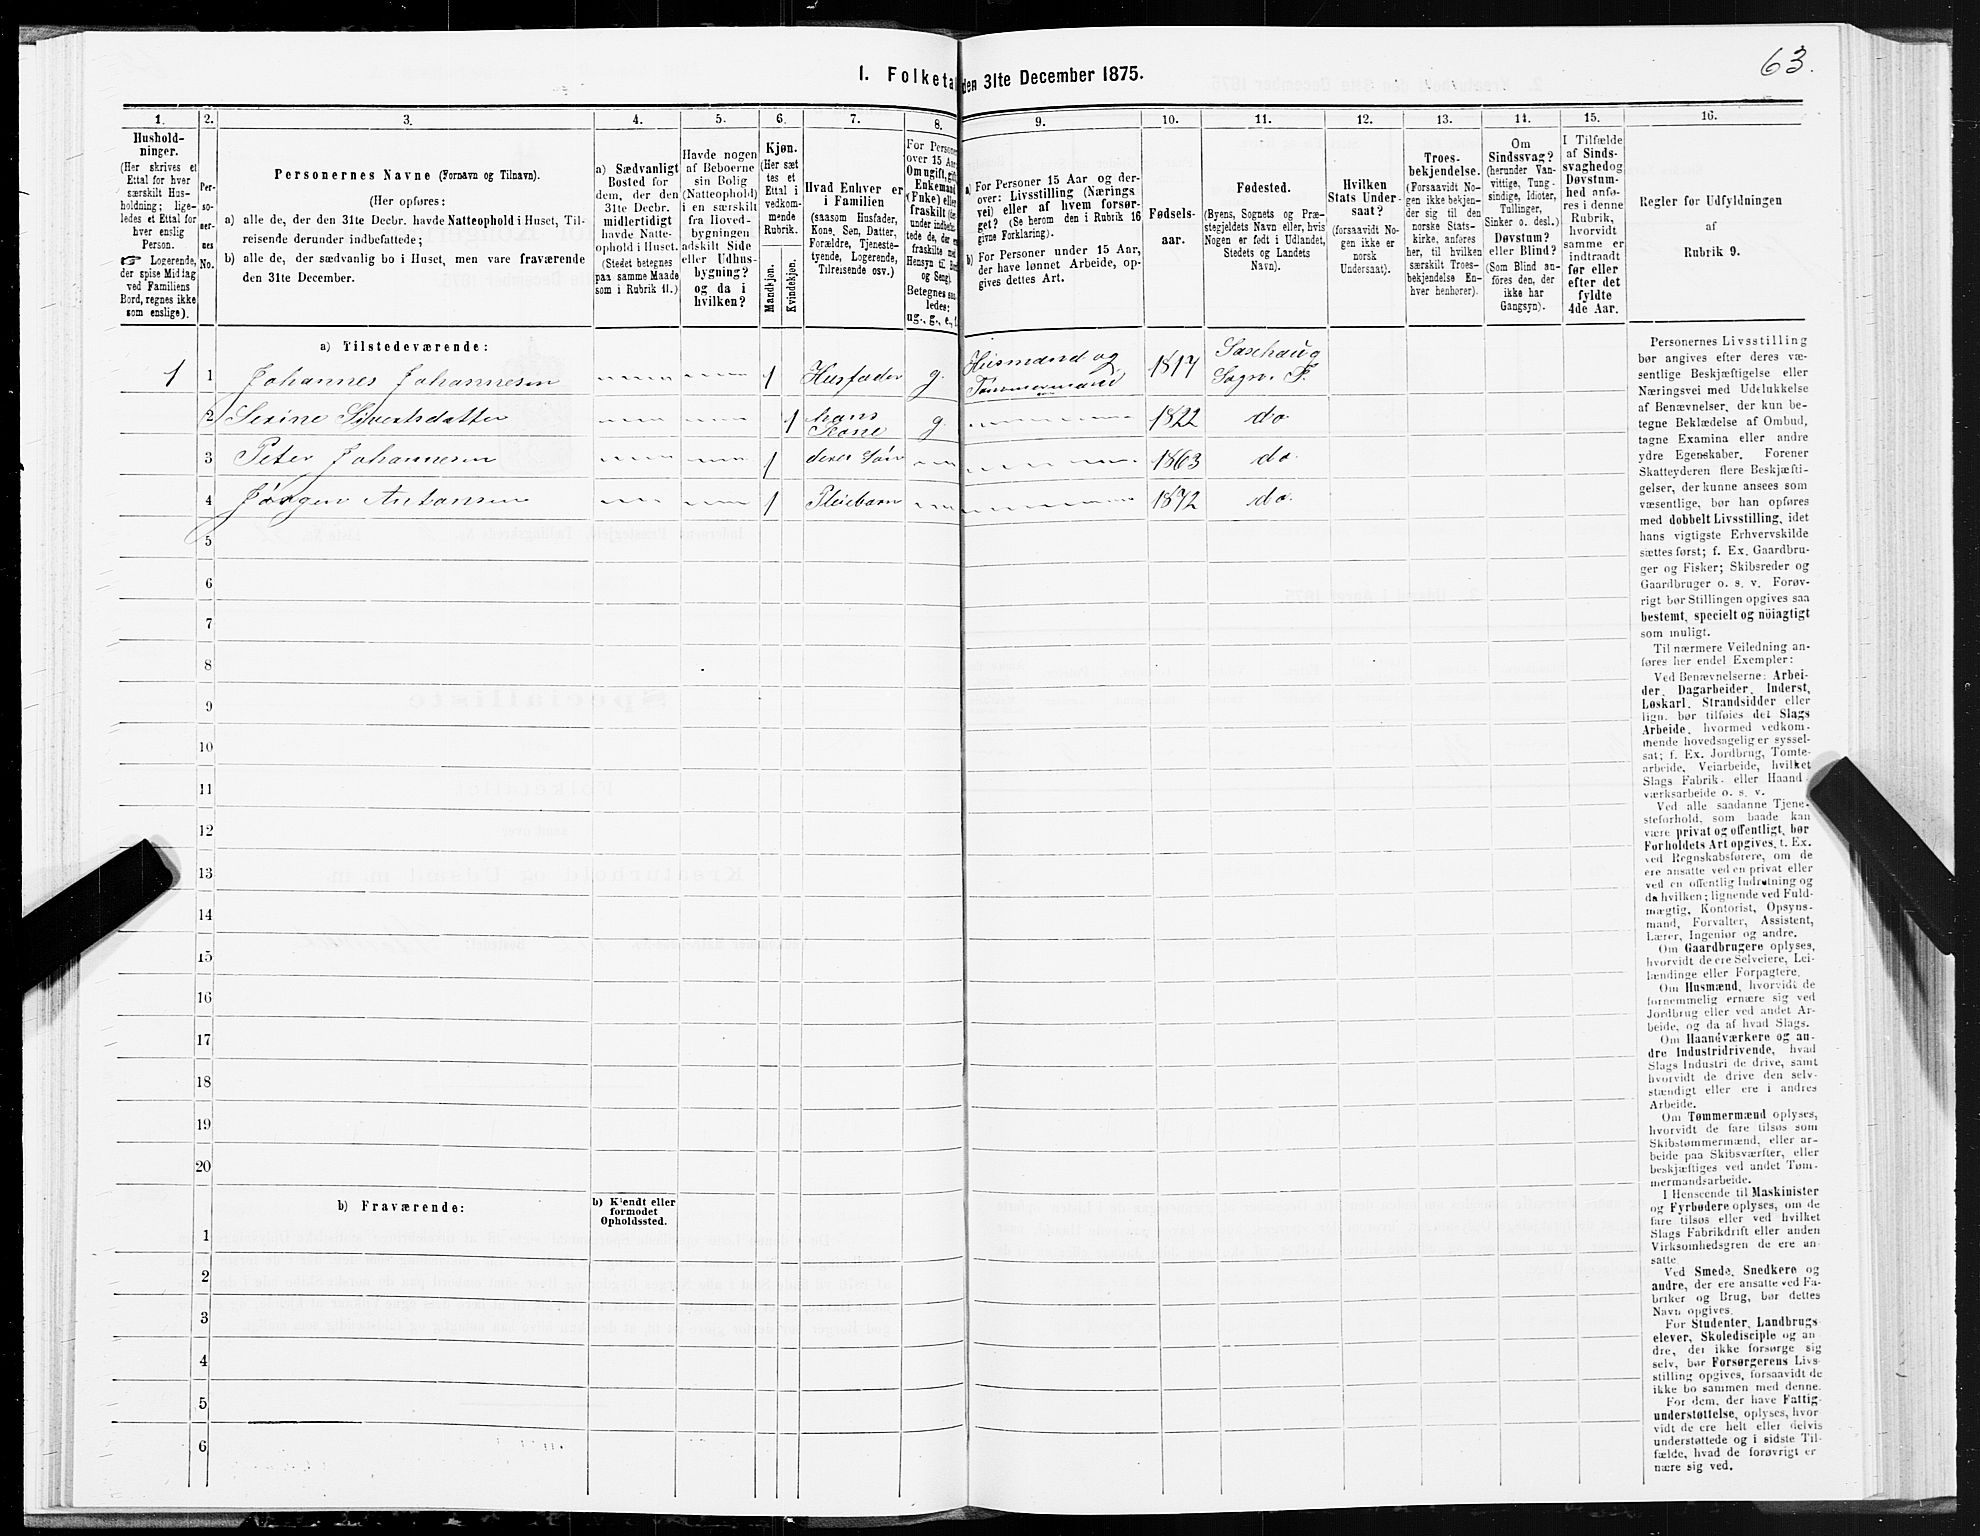 63.
I. Folketal den 31te December 1875.
1. 2. 3. 4. 5. 6. 7. 8. 9. 10. 11. 12. 13. 14. 15. 16.
Hushold-
ninger.
(Her skrives et
Ettal for hver
særskilt Hus-
holdning; lige-
ledes et Ettal for
hver enslig
Person.
☞ Logerende,
der spise Middag
ved Familiens
Bord, regnes ikke
som enslige).
Per-
so-
ner-
nes
No.
Personernes Navne (Fornavn og Tilnavn).
(Her opføres:
a) alle de, der den 31te Decbr. havde Natteophold i Huset, Til-
reisende derunder indbefattede;
b) alle de, der sædvanlig bo i Huset, men vare fraværende
den 31te December.
a) Sædvanligt
Bosted for
dem, der den
31te Decbr.
midlertidigt
havde Natte-
ophold i Huset.
(Stedet betegnes
paa samme Maade
som i Rubrik 11.)
Havde nogen
af Beboerne
sin Bolig
(Natteophold)
i en særskilt
fra Hoved-
bygningen
adskilt Side
eller Udhus-
bygning?
og da i
hvilken?
Kjøn.
(Her sæt-
tes et
Ettal i
vedkom-
mende
Rubrik.
Mandkjøn.
Kvindekjøn.
Hvad Enhver er
i Familien
(saasom Husfader,
Kone, Søn, Datter,
Forældre, Tjeneste-
tyende, Logerende,
Tilreisende osv.)
For Personer
over 15 Aar:
Om ugift, gift,
Enkemand
(Enke) eller
fraskilt (der-
under indbefat-
tede de, der ere
fraskilte med
Hensyn til Bord
og Seng).
Betegnes saa-
ledes:
ug., g., e., f.
a) For Personer 15 Aar og der-
over: Livsstilling (Nærings-
vei) eller af hvem forsør-
get? (Se herom den i Rubrik 16
givne Forklaring).
b) For Personer under 15 Aar,
der have lønnet Arbeide, op-
gives dettes Art.
Fødsels-
aar.
Fødested.
(Byens, Sognets og Præ-
stegjeldets Navn eller, hvis
Nogen er født i Udlandet,
Stedets og Landets
Navn).
Hvilken
Stats Under-
saat?
(forsaavidt No-
gen ikke er
norsk
Undersaat).
Troes-
bekjendelse.
(Forsaavidt No-
gen ikke bekjen-
der sig til den
norske Stats-
kirke, anføres
her, til hvilken
særskilt Troes-
bekjendelse En-
hver henhører).
Om
Sindssvag?
(herunder Van-
vittige, Tung-
sindige, Idioter,
Tullinger,
Sinker o. desl.)
Døvstum?
eller Blind?
(Som Blind an-
føres den, der
ikke har
Gangsyn).
I Tilfælde
af Sinds-
svaghed og
Døvstum-
hed anfø-
res i denne
Rubrik,
hvorvidt
samme er
indtraadt
før eller
efter det
fyldte
4de Aar.
Regler før Udfyldningen
af
Rubrik 9.
a) Tilstedeværende:
1 1 Johannes Johannesen 1 Husfader g. Husmand og Tømmermand 1817 Sogn. P.
2 Serine Sivertsdatter 1 hans Kone g. 1822 do
3 Peter Johannesen 1 deres Søn 1863 do.
4 Jørgen Antonsen 1 Pleiebarn 1872 do.
5
6
7
8
9
10
11
12
13
14
15
16
17
18
19
20
b) Fraværende:
b) Kjendt eller
formodet
Opholdssted.
1
2
3
4
5
6
Personernes Livsstilling
bør angives efter deres væ-
sentlige Beskjæftigelse eller
Næringsvei med Udelukkelse
af Benævnelser, der kun be-
tegne Beklædelse af Ombud,
tagne Examina eller andre
ydre Egenskaber. Forener
Skatteyderen flere Beskjæfti-
gelser, der kunne ansees som
væsentlige, bør han opføres
med dobbelt Livsstilling, idet
hans vigtigste Erhvervskilde
sættes først; f. Ex. Gaardbru-
ger og Fisker; Skibsreder og
Gaardbruger o. s. v. Forøv-
rigt bør Stillingen opgives saa
bestemt, specielt og nöiagtigt
som muligt.
Til nærmere Veiledning an-
føres her endel Exempler:
Ved Benævnelserne: Arbei-
der, Dagarbeider, Inderst,
Løskarl, Strandsidder eller
lign. bør tilføies det Slags
Arbeide, hvormed vedkom-
mende hovedsagelig er syssel-
sat; f. Ex. Jordbrug, Tomte-
arbeide, Veiarbeide, hvilket
Slags Fabrik- eller Haand-
værksarbeide o. s. v.
Ved alle saadanne Tjene-
steforhold, som baade kan
være privat og offentligt, bør
Forholdets Art opgives, t. Ex.
ved Regnskabsførere, om de
ere ansatte ved en privat eller
ved en offentlig Indretning og
da hvilken; lignende ved Fuld-
mægtig, Kontorist, Opsyns-
mand, Forvalter, Assistent,
Lærer, Ingeniør og andre.
Om Gaardbrugere oplyses,
hvorvidt de ere Selveiere, Lei-
lændinge eller Forpagtere.
Om Husmænd, hvorvidt de
fornemmelig ernære sig ved
Jordbrug eller ved andet Ar-
beide, og da af hvad Slags.
Om Haandværkere og an-
dre Industridrivende, hvad
Slags Industri de drive, samt
hvorvidt de drive den selv-
stændigt eller ere i andres
Arbeide.
Om Tømmermænd oplyses,
hvorvidt de fare tilsøs som
Skibstømmermænd, eller ar-
beide paa Skibsværfter, eller
beskjæftiges ved andet Tøm-
mermandsarbeide.
I Henseende til Maskinister
og Fyrbødere oplyses, om de
fare tilsøs eller ved hvilket
Slags Fabrikdrift eller anden
Virksomhedsgren de ere an-
satte.
Ved Smede, Snedkere og
andre, der ere ansatte ved Fa-
briker og Brug, bør dettes
Navn opgives.
For Studenter, Landbrugs-
elever, Skoledisciple og an-
dre, der ikke forsørge sig
selv, bør Forsørgerens Livs-
stilling opgives, forsaavidt de
ikke bo sammen med denne.
For dem, der have Fattig-
understøttelse, oplyses, hvor-
vidt de ere helt eller delvis
understøttede og i sidste Til-
fælde, hvad de forøvrigt er-
nære sig ved.